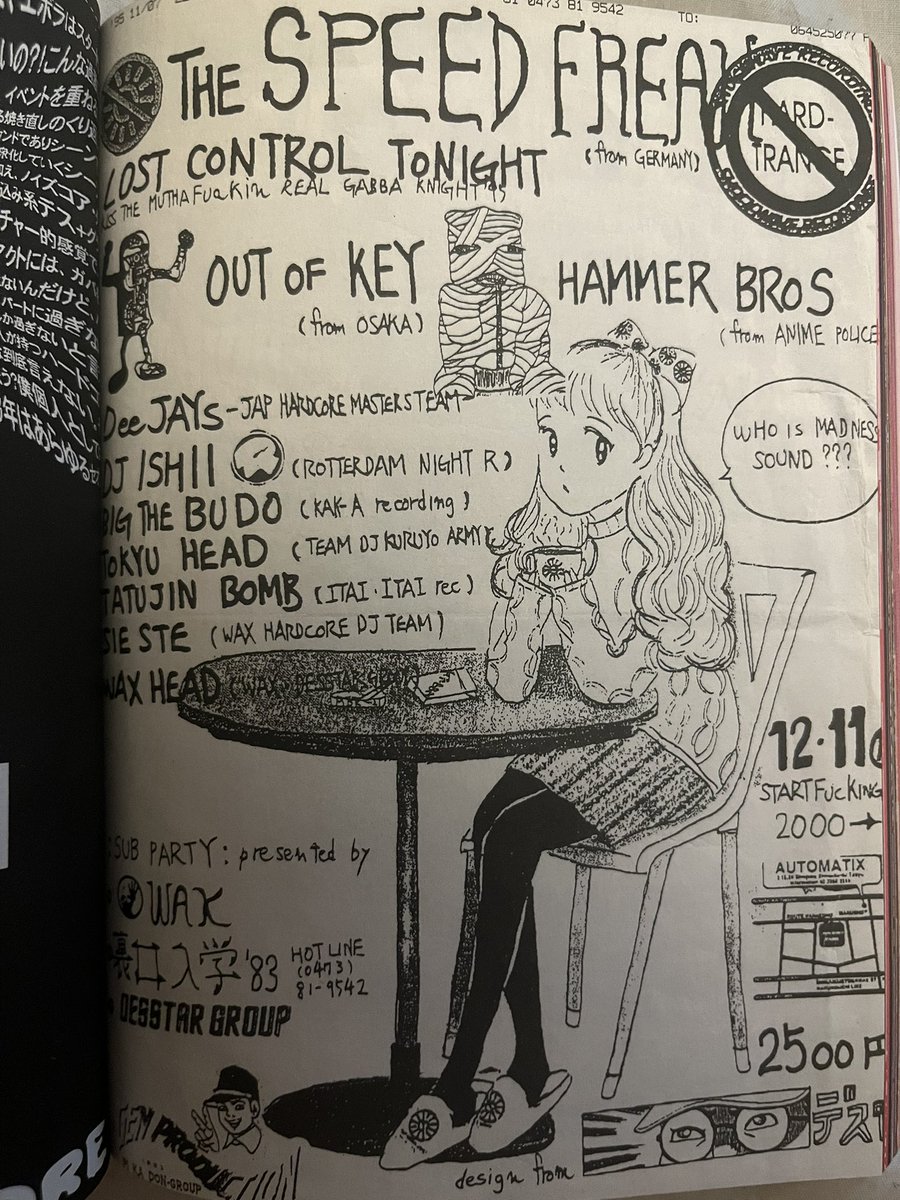 95 11/07
0473 81 9542
TO:
THE SPEED FREAK
(from GERMANY)
HARD-
TRANCE
SHOCKWAVE RECORDINGS
LOST CONTROL TONIGHT
THE MUTHAFuckin REAL GABBA KNIGHT'95
OUT OF KEY
(from OSAKA)
HAMMER BROS
(from ANIME POLICE
DeeJAYs-JAP HARDCORE MASTERS TEAM
DJ ISHII (ROTTERDAM NIGHT R)
BIG THE BUDO (KAK-A recording)
TOKYU HEAD (TEAM DJ KURUYO ARMY)
TATUJIN BOMB (ITAI・ITAI rec)
SIE STE (WAX HARDCORE DJ TEAM)
WAX HEAD (WAX, DESSTAR GROUP)
WHO iS MADNESS
SOUND ???
12・11
START FucKING
2000→
AUTOMATIX
SUB PARTY: presented by
WAX
裏口入学'83
HOT LINE
(0473)
81-9542
DESSTAR GROUP
2500円
PRODUC
KA DON-GROUP
design from
デス
イベントを重ね
焼き直しのくり
ノイズコア
チャー的感覚で
アクトには、ガバ
ないんだけど
パートに過ぎな
か過ぎないと
到底言えない
年はあらゆる